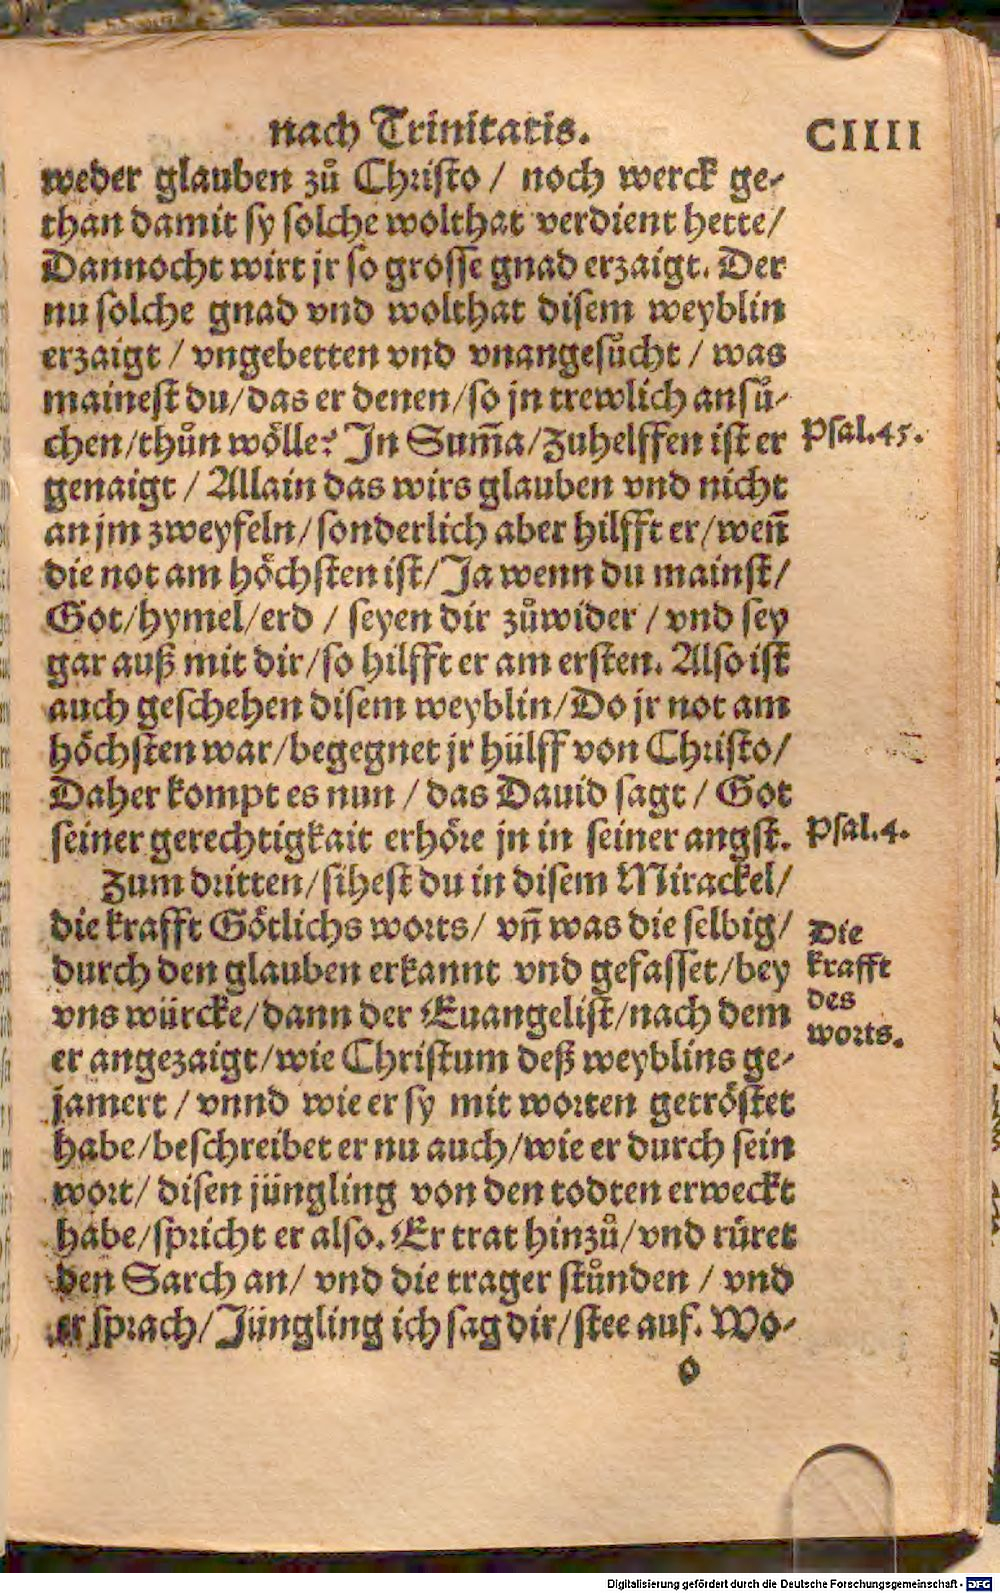 nach Trinitatis. CIIII
weder glauben zuͦ Christo / noch werck ge-
than damit sy solche wolthat verdient hette/
Dannocht wirt jr so grosse gnad erzaigt. Der
nu solche gnad vnd wolthat disem weyblin
erzaigt / vngebetten vnd vnangesuͦcht / was
mainest du/das er denen/so jn trewlich ansuͦ-
chen/thuͦn woͤlle? In Sum̃a/Zuhelffen ist er
Psal.45.
genaigt / Allain das wirs glauben vnd nicht
an jm zweyfeln/sonderlich aber hilfft er/weñ
die not am hoͤchsten ist/Ja wenn du mainst/
Got/hymel/erd / seyen dir zuͦwider / vnd sey
gar auß mit dir/so hilfft er am ersten. Also ist
auch geschehen disem weyblin/Do jr not am
hoͤchsten war/begegnet jr hülff von Christo/
Daher kompt es nun / das Dauid sagt / Got
seiner gerechtigkait erhoͤre jn in seiner angst.
Psal.4.
Zum dritten/sihest du in disem Mirackel/
die krafft Goͤtlichs worts/ vñ was die selbig/
durch den glauben erkannt vnd gefasset/bey
vns würcke/dann der Euangelist/nach dem
Die
krafft
des
worts.
er angezaigt/wie Christum deß weyblins ge-
jamert / vnnd wie er sy mit worten getroͤstet
habe/beschreibet er nu auch/wie er durch sein
wort/ disen jüngling von den todten erweckt
habe/spricht er also. Er trat hinzuͦ/vnd rüret
den Sarch an/ vnd die trager stuͦnden / vnd
er sprach/Jüngling ich sag dir/stee auf. Wo-
o
Digitalisierung gefördert durch die Deutsche Forschungsgemeinschaft - DFG